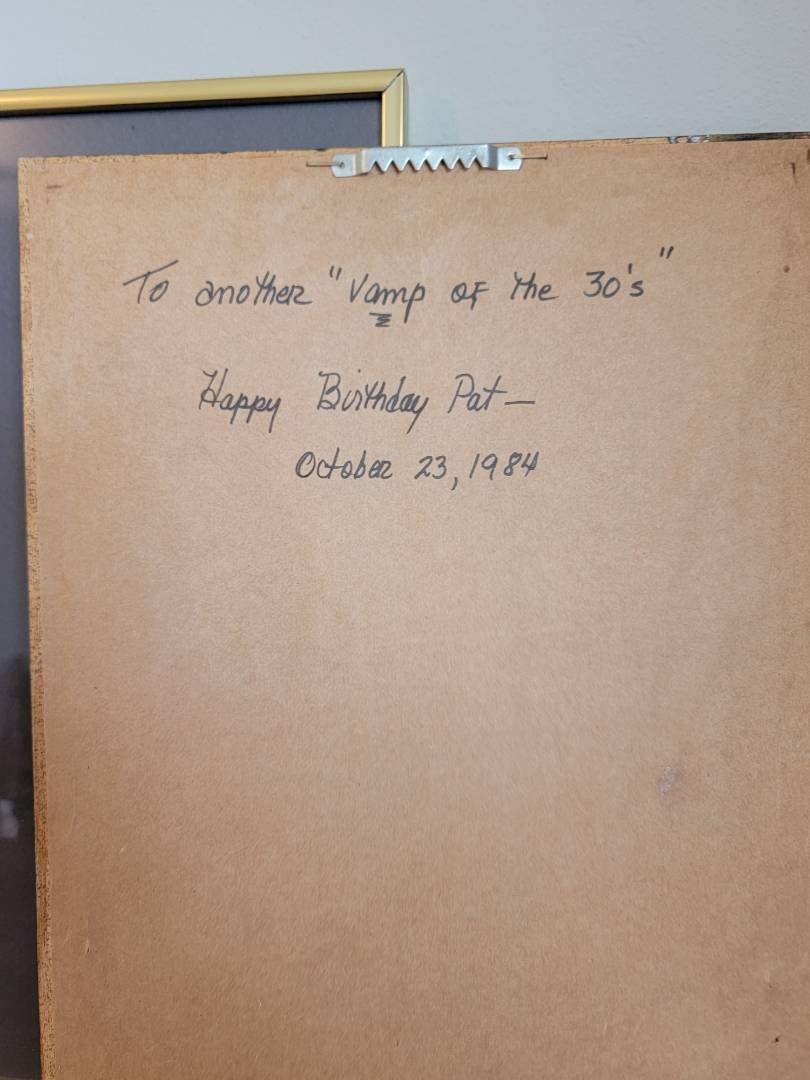 To another "Vamp of the 30's"
Happy Birthday Pat—
October 23, 1984